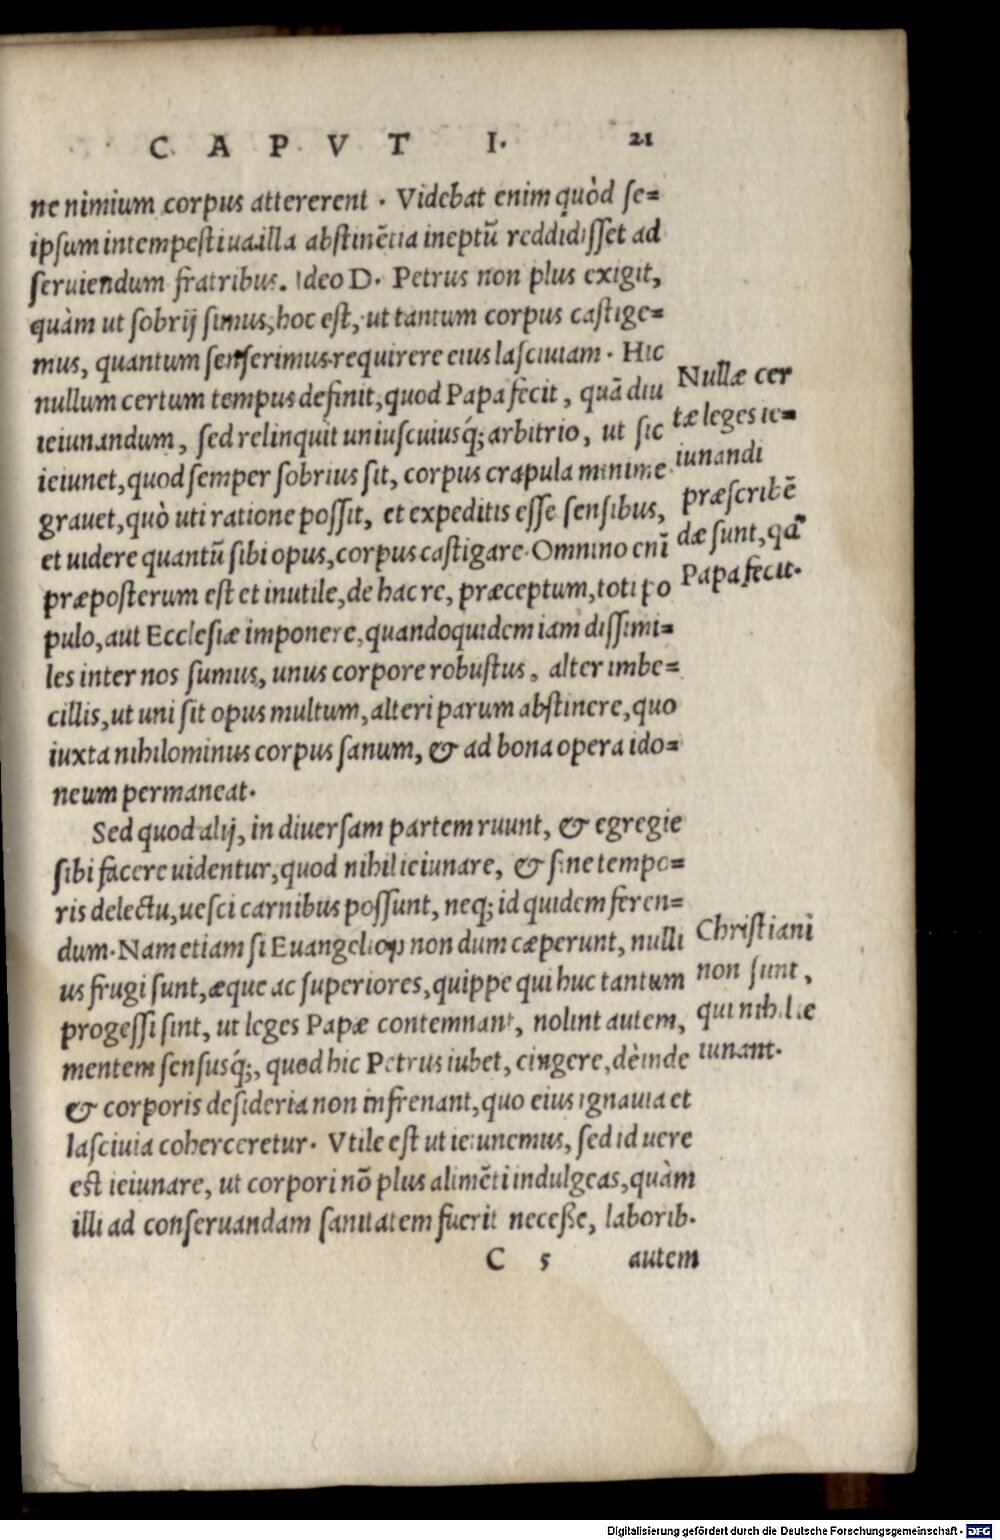 CAPVT I. 21
ne nimium corpus attererent. Videbat enim quòd se=
ipsum intempestiua illa abstinẽtia ineptũ reddidisset ad
seruiendum fratribus. Ideo D. Petrus non plus exigit,
quàm ut sobrij simus, hoc est, ut tantum corpus castige=
mus, quantum senserimus requirere eius lasciuiam. Hic
nullum certum tempus definit, quod Papa fecit, quã diu
ieiunandum, sed relinquit uniuscuiusq́; arbitrio, ut sic
ieiunet, quod semper sobrius sit, corpus crapula minime
grauet, quò uti ratione possit, et expeditis esse sensibus,
et uidere quantũ sibi opus, corpus castigare. Omnino enĩ
præposterum est et inutile, de hac re, præceptum, toti po
pulo, aut Ecclesiæ imponere, quandoquidem iam dissimi=
les inter nos sumus, unus corpore robustus, alter imbe=
cillis, ut uni sit opus multum, alteri parum abstinere, quo
iuxta nihilominus corpus sanum, & ad bona opera ido=
neum permaneat.
Nullæ cer
tæ leges ie=
iunandi
præscribẽ
dæ sunt, qã
Papa fecit.
Sed quod alij, in diuersam partem ruunt, & egregie
sibi facere uidentur, quod nihil ieiunare, & sine tempo=
ris delectu, uesci carnibus possunt, neq; id quidem feren=
dum. Nam etiam si Euangelion non dum cæperunt, nulli
us frugi sunt, æque ac superiores, quippe qui huc tantum
progessi sint, ut leges Papæ contemnant, nolint autem,
mentem sensusq́;, quod hic Petrus iubet, cingere, dèinde
& corporis desideria non infrenant, quo eius ignauia et
lasciuia coherceretur. Vtile est ut ieiunemus, sed id uere
est ieiunare, ut corpori nõ plus alimẽti indulgeas, quàm
illi ad conseruandam sanitatem fuerit necesse, laborib.
Christiani
non sunt,
qui nihil ie
iunant.
C 5 autem
Digitalisierung gefördert durch die Deutsche Forschungsgemeinschaft - DFG